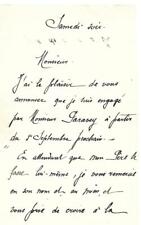 Samedi soir
Monsieur
J'ai le plaisir de vous
annoncer que je suis engagé
par Monsieur à partir
du 1er Septembre prochain.
En attendant que mon Père le
fasse lui-même, je vous remercie
en son nom et au mien, et
vous prie de croire à la